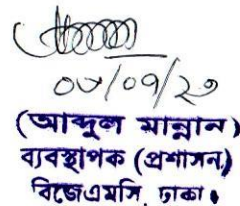 ০৩/০৭/২৩
(আব্দুল মান্নান)
ব্যবস্থাপক (প্রশাসন)
বিজেএমসি, ঢাকা।